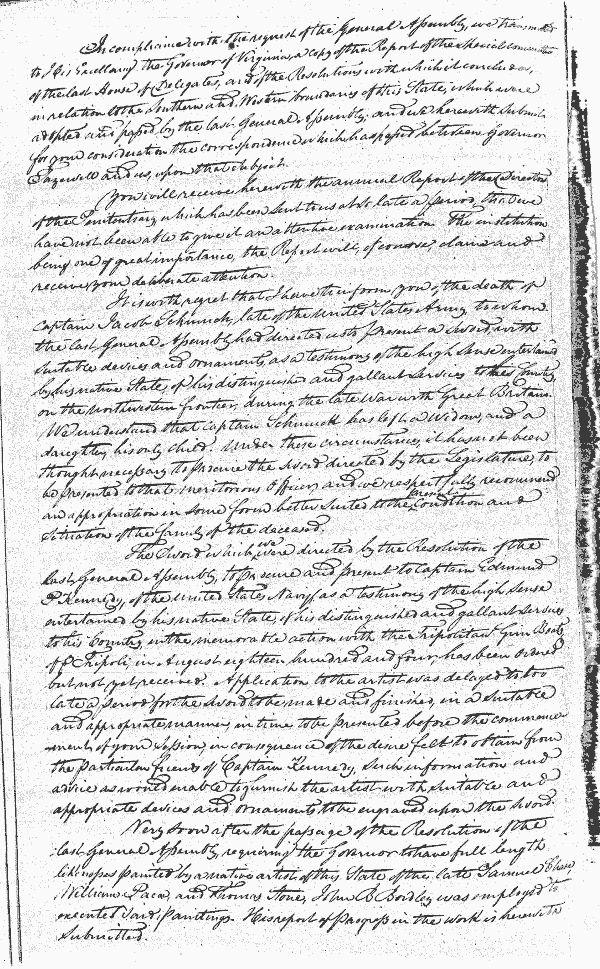 In compliance with the request of the General Assembly, we transmitted
to His Excellency the Governor of Virginia, a copy of the Report of the special committee
of the last House of Delegates, and of the Resolutions with which it concludes,
in relation to the Southern and Western boundaries of this State, which were
adopted and passed by the last General Assembly, and we herewith submit
for your consideration the correspondence which has passed between Governor
Tazewell and us, upon that subject.
You will receive herewith the annual Report of the Directors
of the Penitentiary which has been sent to us at so late a period, that we
have not been able to give it an attentive examination. The institution
being one of great importance, the Report will, of course, claim and
receive your deliberate attention.
It is with regret that I have to inform you, of the death of
Captain Jacob Schmuck, late of the United States Army to whom
the last General Assembly had directed us to present a Sword, with
suitable devices and ornaments, as a testimony of the high sense entertained
by his native State, of his distinguished and gallant services to the Country
on the Northwestern frontier, during the late War with Great Britain.
We understand that Captain Schmuck has left a Widow, and a
daughter, his only child. Under these circumstances, it has not been
thought necessary to procure the Sword directed by the Legislature, to
be presented to that meritorious Officer, and we respectfully recommend
an appropriation in some form better suited to the present Condition and
situation of the family of the deceased.
The Sword which we were directed by the Resolution of the
last General Assembly, to procure and present to Captain Edmund
P. Kennedy, of the United States Navy, as a testimony of the high sense
entertained by his native State, of his distinguished and gallant services
to his Country, in the memorable action with the Tripolitan Gun Boats
off Tripoli, in August eighteen hundred and four, has been ordered
but not yet received. Application to the artist was delayed to too
late a period for the sword to be made and finished, in a suitable
and appropriate manner, in time to be presented before the commence-
ment of your Session, in consequence of the desire felt to obtain from
the particular friends of Captain Kennedy, such information and
advice as would enable to furnish the artist with suitable and
appropriate devices and ornaments, to be engraved upon the sword.
Very soon after the passage of the Resolution of the
last General Assembly, requiring the Governor to have full length
likenesses painted by a native artist of this State of the late Samuel Chase,
William Paca, and Thomas Stone, John B. Bordley was employed to
execute said Paintings. His report of progress in the work is herewith
submitted.